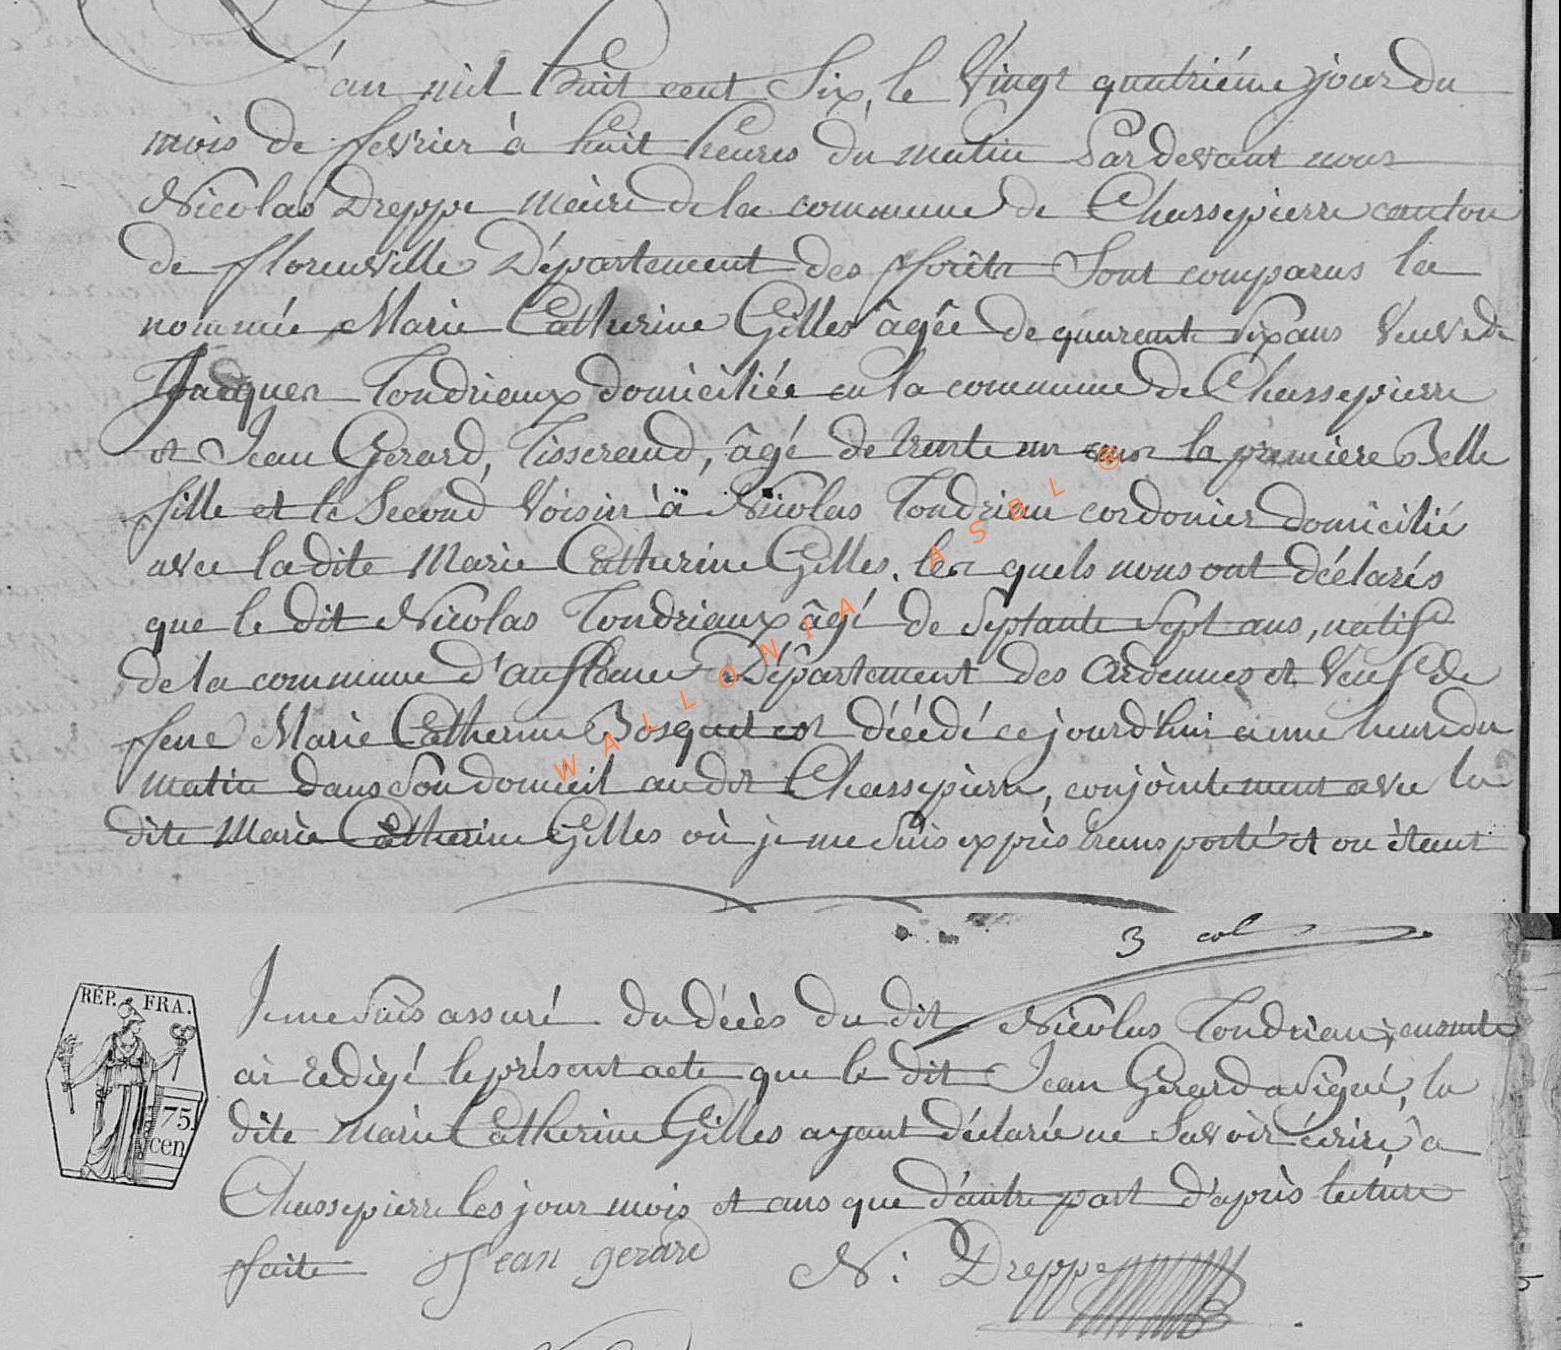 L'an mil huit cent Six, le Vingt quatriéme jour du
mois de fevrier à huit heures du matin Pardevant nous
Nicolas Dreppe maire de la commune de Chassepierre canton
de florenville Département des fforêts Sont comparus la
nommée Marie Catherine Gilles âgée de quarente Six ans Veuve de
Jacques Tondrieaux domiciliée en la commune de Chassepierre
et Jean Gerard, Tisserand, âgé de trente un ans la première Belle
fille et le Second Voisin à Nicolas Tondriau cordonier domicilié
avec la dite Marie Catherine Gilles. les quels nous ont déclarés
que le dit Nicolas Tondriaux âgé de Septante Sept ans, natif
de la commune Département des Ardennes et Veuf de
feue Marie Catherine Bosquet est décédé ce jourd'hui à une heure du
matin dans Son domicil au dit Chassepierre, conjointement avec la
dite Marie Catherine Gilles où je me Suis exprès transporté et ou étant
3 col
RÉP. FRA.
75.
cen
Je me Suis assuré du décès du dit Nicolas Tondriau, ensuite
ai redigé le présent acte que le dit Jean Gerard a Signé, la
dite Marie Catherine Gilles ayant déclarée ne Savoir écrire, à
Chassepierre les jour mois et ans que d'autre part d'après lecture
faite Jean gerard N: Dreppe
WALLONIA ASBL ®